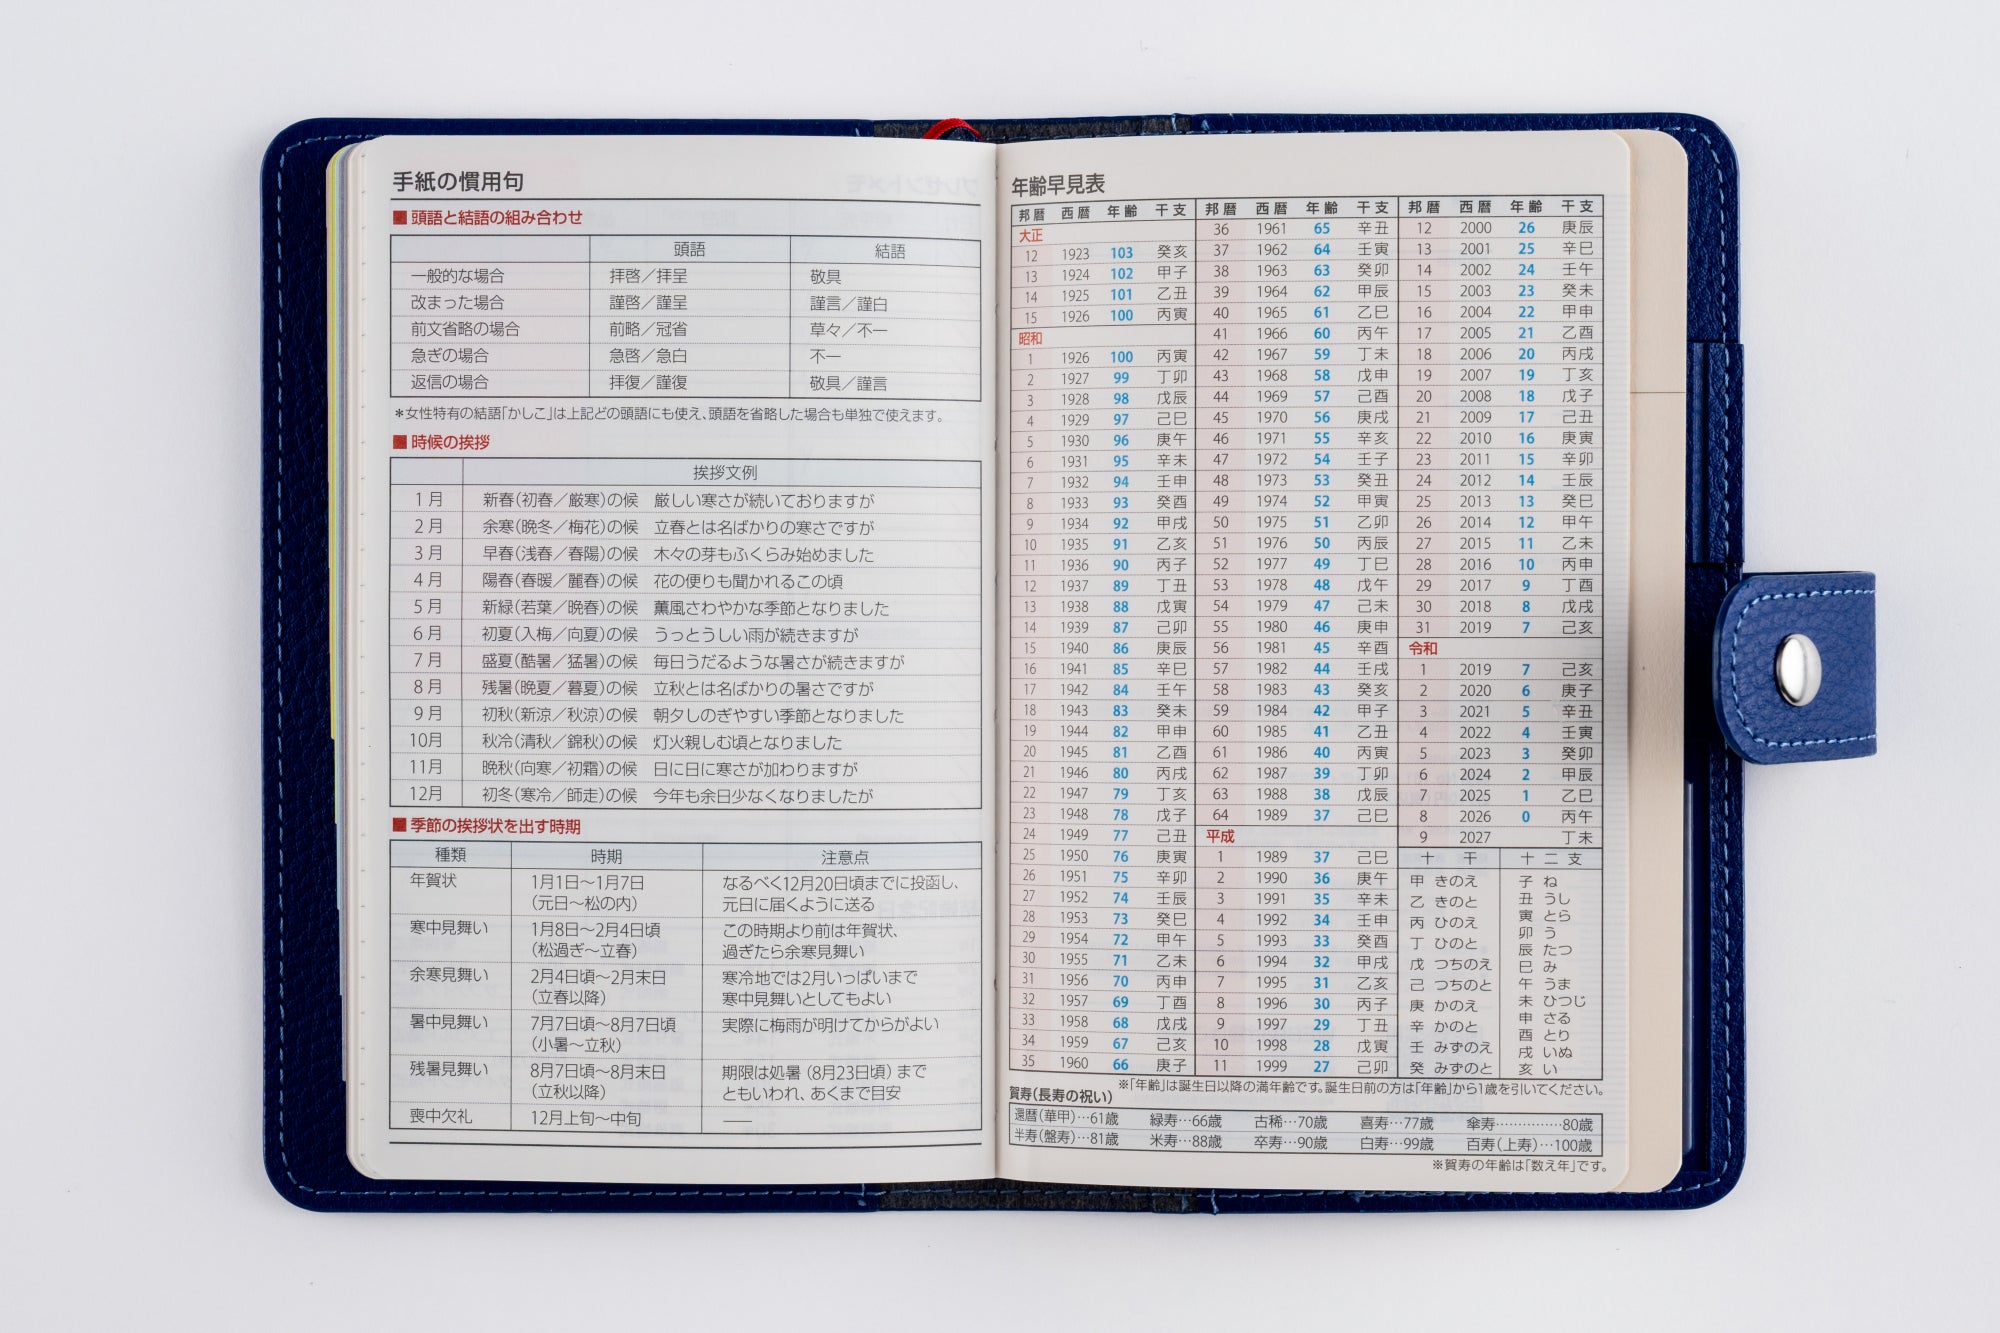 手紙の慣用句
■頭語と結語の組み合わせ
頭語 結語
一般的な場合 拝啓／拝呈 敬具
改まった場合 謹啓／謹呈 謹言／謹白
前文省略の場合 前略／冠省 草々／不一
急ぎの場合 急啓／急白 不一
返信の場合 拝復／謹復 敬具／謹言
＊女性特有の結語「かしこ」は上記どの頭語にも使え、頭語を省略した場合も単独で使えます。
■時候の挨拶
挨拶文例
1月 新春（初春／厳寒）の候 厳しい寒さが続いておりますが
2月 余寒（晩冬／梅花）の候 立春とは名ばかりの寒さですが
3月 早春（浅春／春陽）の候 木々の芽もふくらみ始めました
4月 陽春（春暖／麗春）の候 花の便りも聞かれるこの頃
5月 新緑（若葉／晩春）の候 薫風さわやかな季節となりました
6月 初夏（入梅／向夏）の候 うっとうしい雨が続きますが
7月 盛夏（酷暑／猛暑）の候 毎日うだるような暑さが続きますが
8月 残暑（晩夏／暮夏）の候 立秋とは名ばかりの暑さですが
9月 初秋（新涼／秋涼）の候 朝夕しのぎやすい季節となりました
10月 秋冷（清秋／錦秋）の候 灯火親しむ頃となりました
11月 晩秋（向寒／初霜）の候 日に日に寒さが加わりますが
12月 初冬（寒冷／師走）の候 今年も余日少なくなりましたが
■季節の挨拶状を出す時期
種類 時期 注意点
年賀状 1月1日～1月7日 なるべく12月20日頃までに投函し、
（元日～松の内） 元日に届くように送る
寒中見舞い 1月8日～2月4日頃 この時期より前は年賀状、
（松過ぎ～立春） 過ぎたら余寒見舞い
余寒見舞い 2月4日頃～2月末日 寒冷地では2月いっぱいまで
（立春以降） 寒中見舞いとしてもよい
暑中見舞い 7月7日頃～8月7日頃 実際に梅雨が明けてからがよい
（小暑～立秋）
残暑見舞い 8月7日頃～8月末日 期限は処暑（8月23日頃）まで
（立秋以降） ともいわれ、あくまで目安
喪中欠礼 12月上旬～中旬 ――
年齢早見表
邦暦 西暦 年齢 干支
大正
12 1923 103 癸亥
13 1924 102 甲子
14 1925 101 乙丑
15 1926 100 丙寅
昭和
1 1926 100 丙寅
2 1927 99 丁卯
3 1928 98 戊辰
4 1929 97 己巳
5 1930 96 庚午
6 1931 95 辛未
7 1932 94 壬申
8 1933 93 癸酉
9 1934 92 甲戌
10 1935 91 乙亥
11 1936 90 丙子
12 1937 89 丁丑
13 1938 88 戊寅
14 1939 87 己卯
15 1940 86 庚辰
16 1941 85 辛巳
17 1942 84 壬午
18 1943 83 癸未
19 1944 82 甲申
20 1945 81 乙酉
21 1946 80 丙戌
22 1947 79 丁亥
23 1948 78 戊子
24 1949 77 己丑
25 1950 76 庚寅
26 1951 75 辛卯
27 1952 74 壬辰
28 1953 73 癸巳
29 1954 72 甲午
30 1955 71 乙未
31 1956 70 丙申
32 1957 69 丁酉
33 1958 68 戊戌
34 1959 67 己亥
35 1960 66 庚子
邦暦 西暦 年齢 干支
36 1961 65 辛丑
37 1962 64 壬寅
38 1963 63 癸卯
39 1964 62 甲辰
40 1965 61 乙巳
41 1966 60 丙午
42 1967 59 丁未
43 1968 58 戊申
44 1969 57 己酉
45 1970 56 庚戌
46 1971 55 辛亥
47 1972 54 壬子
48 1973 53 癸丑
49 1974 52 甲寅
50 1975 51 乙卯
51 1976 50 丙辰
52 1977 49 丁巳
53 1978 48 戊午
54 1979 47 己未
55 1980 46 庚申
56 1981 45 辛酉
57 1982 44 壬戌
58 1983 43 癸亥
59 1984 42 甲子
60 1985 41 乙丑
61 1986 40 丙寅
62 1987 39 丁卯
63 1988 38 戊辰
64 1989 37 己巳
平成
1 1989 37 己巳
2 1990 36 庚午
3 1991 35 辛未
4 1992 34 壬申
5 1993 33 癸酉
6 1994 32 甲戌
7 1995 31 乙亥
8 1996 30 丙子
9 1997 29 丁丑
10 1998 28 戊寅
11 1999 27 己卯
邦暦 西暦 年齢 干支
12 2000 26 庚辰
13 2001 25 辛巳
14 2002 24 壬午
15 2003 23 癸未
16 2004 22 甲申
17 2005 21 乙酉
18 2006 20 丙戌
19 2007 19 丁亥
20 2008 18 戊子
21 2009 17 己丑
22 2010 16 庚寅
23 2011 15 辛卯
24 2012 14 壬辰
25 2013 13 癸巳
26 2014 12 甲午
27 2015 11 乙未
28 2016 10 丙申
29 2017 9 丁酉
30 2018 8 戊戌
31 2019 7 己亥
令和
1 2019 7 己亥
2 2020 6 庚子
3 2021 5 辛丑
4 2022 4 壬寅
5 2023 3 癸卯
6 2024 2 甲辰
7 2025 1 乙巳
8 2026 0 丙午
9 2027 丁未
十干
甲 きのえ
乙 きのと
丙 ひのえ
丁 ひのと
戊 つちのえ
己 つちのと
庚 かのえ
辛 かのと
壬 みずのえ
癸 みずのと
十二支
子 ね
丑 うし
寅 とら
卯 う
辰 たつ
巳 み
午 うま
未 ひつじ
申 さる
酉 とり
戌 いぬ
亥 い
※「年齢」は誕生日以降の満年齢です。誕生日前の方は「年齢」から1歳を引いてください。
賀寿（長寿の祝い）
還暦（華甲）…61歳 緑寿…66歳 古稀…70歳 喜寿…77歳 傘寿……………80歳
半寿（盤寿）…81歳 米寿…88歳 卒寿…90歳 白寿…99歳 百寿（上寿）…100歳
※賀寿の年齢は「数え年」です。